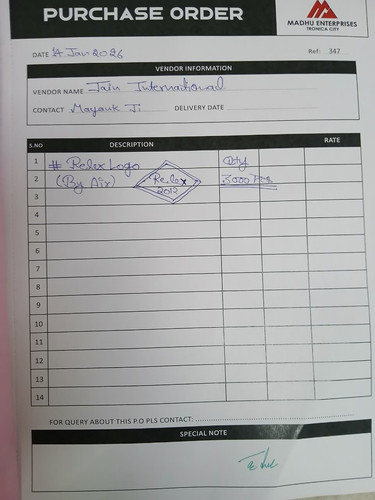 PURCHASE ORDER
MADHU ENTERPRISES
TRONICA CITY
DATE 14 Jan 2026
Ref: 347
VENDOR INFORMATION
VENDOR NAME Jain International
CONTACT Mayank Ji DELIVERY DATE
S.NO DESCRIPTION RATE
1 # Relex Logo Qty
2 (By Air) Relex 3000 Pcs
3 2012
4
5
6
7
8
9
10
11
12
13
14
FOR QUERY ABOUT THIS P.O PLS CONTACT:
SPECIAL NOTE